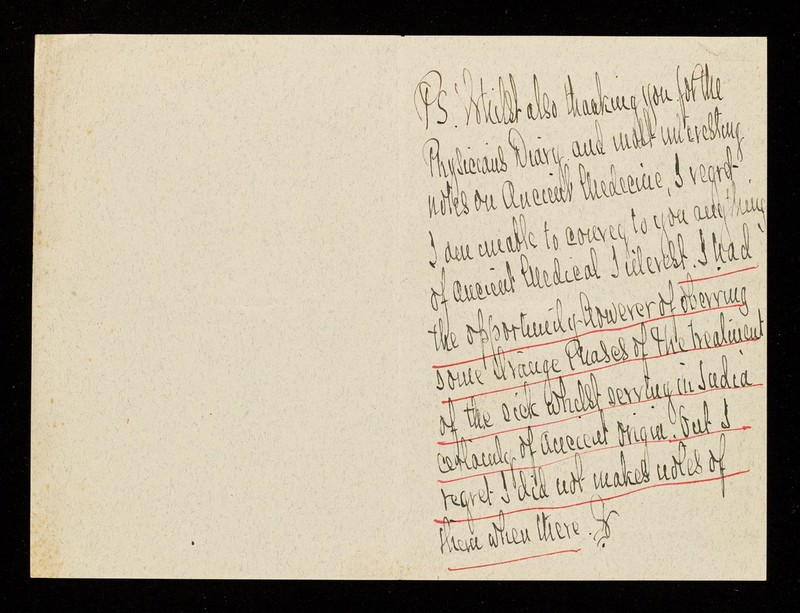 PS. Whilst also thanking you for the
Physicians Diary and most interesting
notes on Ancient Medecine, I regret
I am unable to convey to you anything
of ancient Medical Interest. I had
the opportunity however of oberving
some strange Phases of the treatment
of the sick whilst serving in India
certainly of ancient origin. but I
regret I did not makes notes of
them when there.